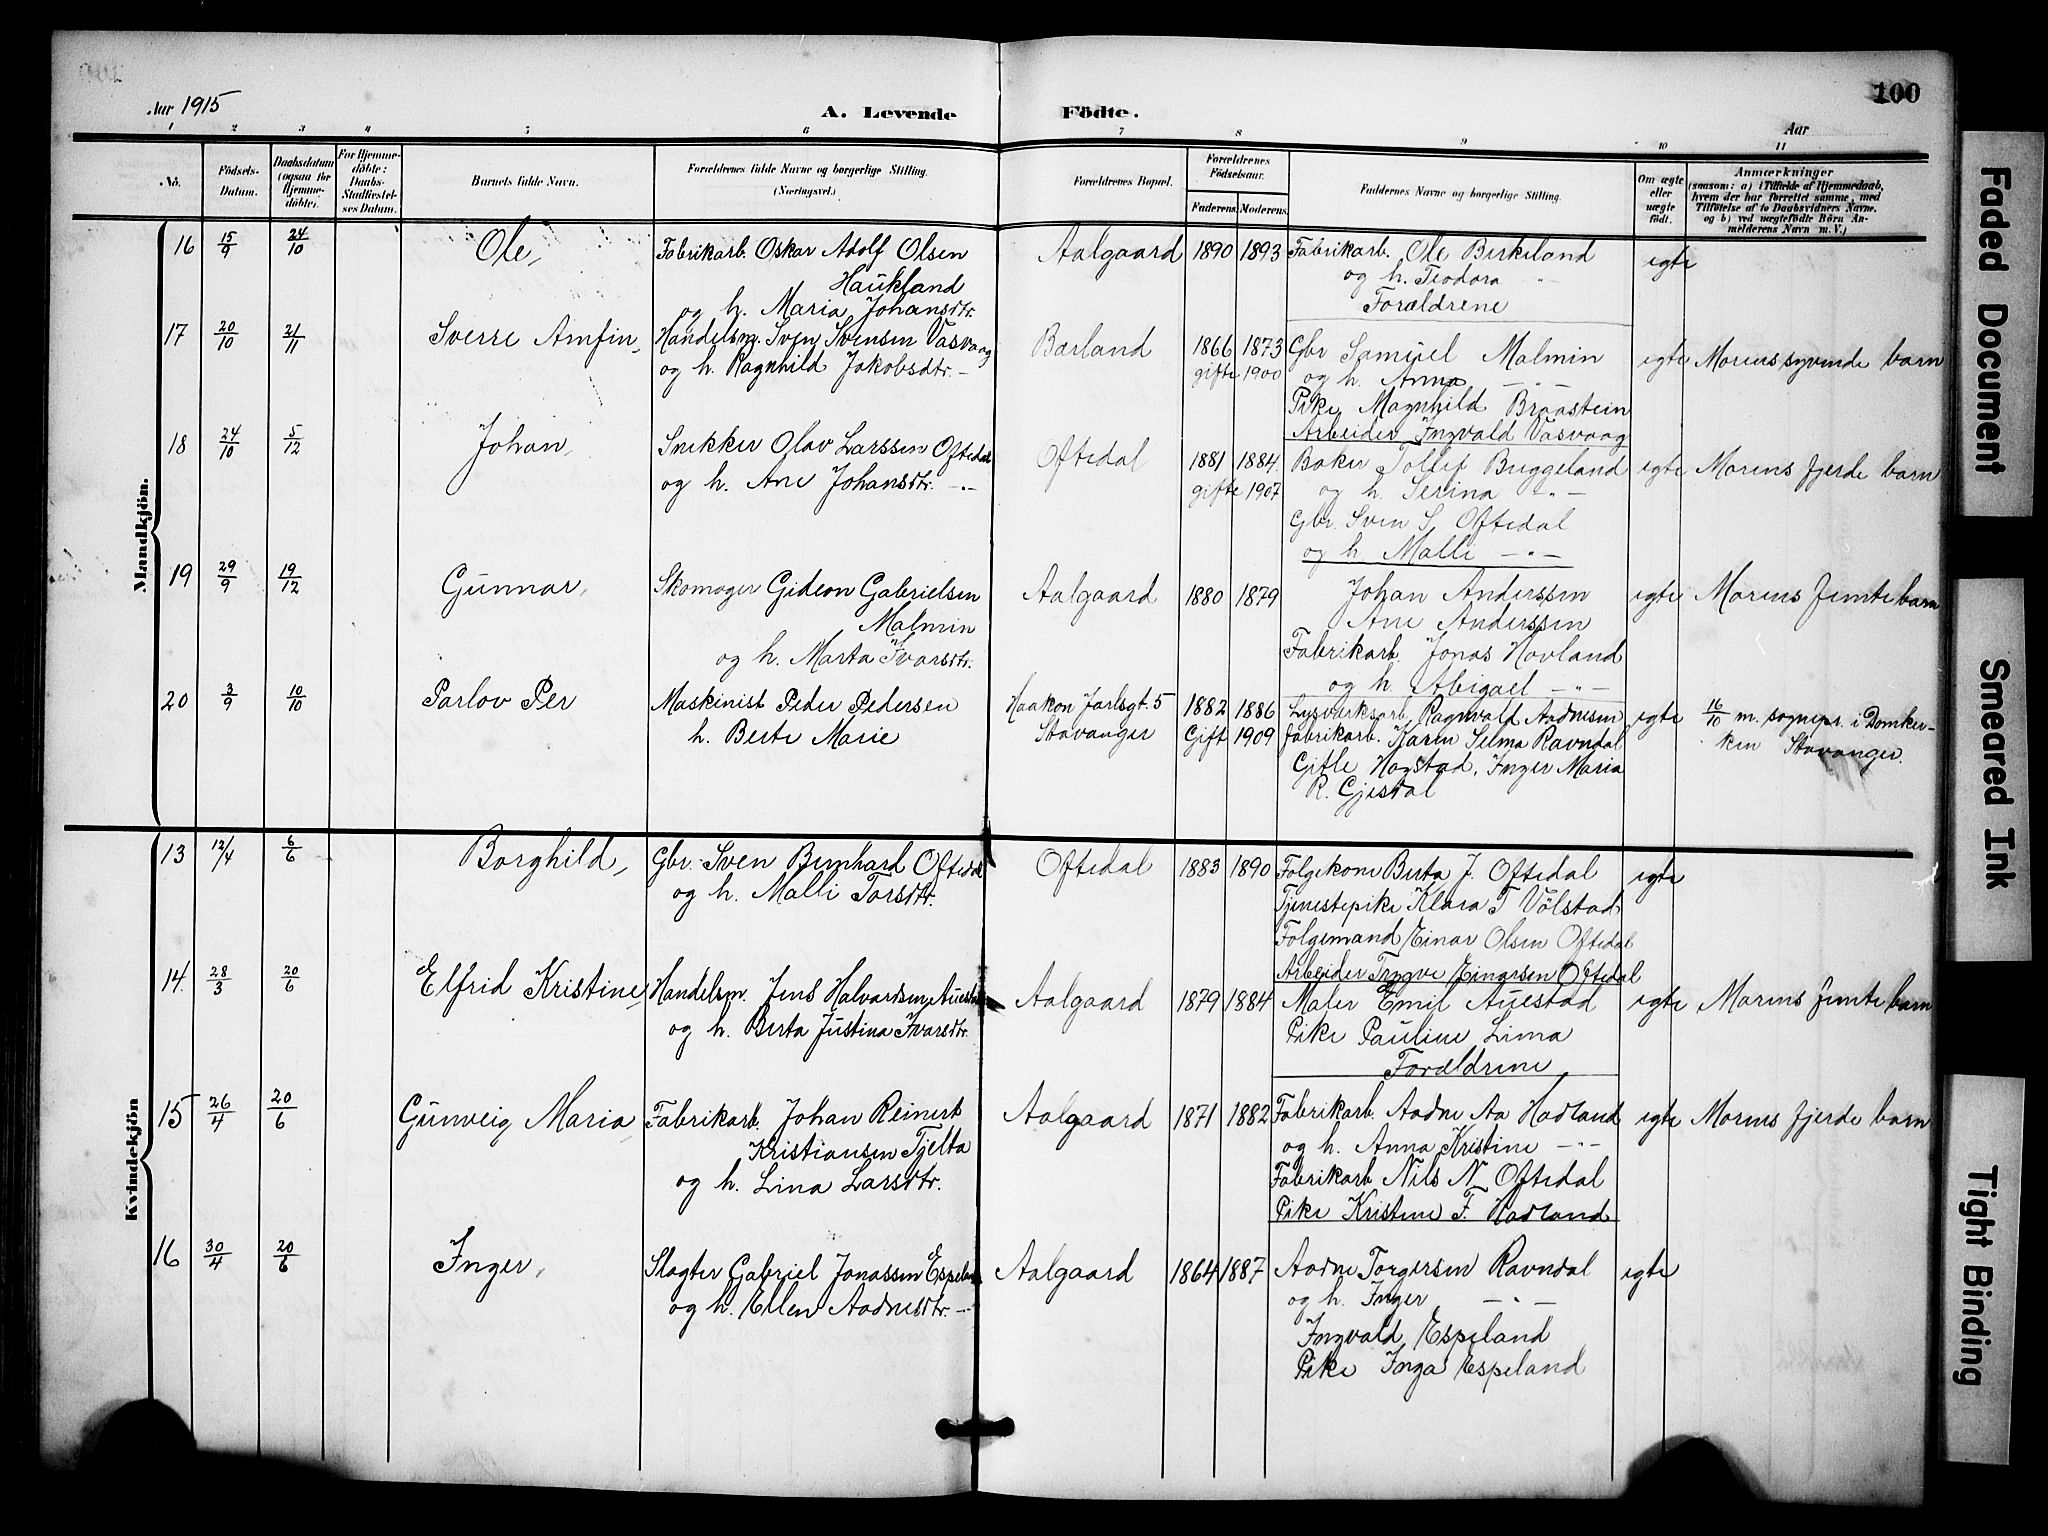 100
Aar 1915
A. Levende Födte.
Aar
1 2 3 4 5 6 7 8 9 10 11
No.
Födsels-Datum.
Daabsdatum (ogsaa for Hjemme-döbte).
For Hjemme-döbte: Daabs-Stadfæstel-ses Datum.
Barnets fulde Navn.
Forældrenes fulde Navne og borgerlige Stilling. (Næringsvei.)
Forældrenes Bopæl.
Forældrenes Födselsaar.
Faderens. Moderens.
Faddernes Navne og borgerlige Stilling.
Om ægte eller uægte födt.
Anmærkninger
(saasom: a) i Tilfælde af Hjemmedaab, hvem der har forrettet samme, med Tilföielse af to Daabsvidners Navne. og b) ved uægtefödte Börn An-melderens Navn m. V.)
Mandkjön.
16 15/9 24/10 Ole, Fabrikarb. Oskar Adolf Olsen Aalgaard 1890 1893 Fabrikarb. Ole Birkeland egte
Haukland og h. Teodora -"-
og h. Maria Johansdtr. Forældrene
17 20/10 21/11 Sverre Arnfin, Handelsm. Sven Svensen Vasvaag Bærland 1866 1873 Gbr Samuel Malmin egte Morens syvende barn
og h. Ragnhild Jakobsdtr. - gifte 1900 og h. Anna -"-
Pike Magnhild Braastein
Arbeider Ingvald Vasvaag
18 24/10 5/12 Johan, Snikker Olav Larssen Oftedal Oftedal 1881 1884. Baker Tollef Buggeland egte Morens fjerde barn
og h. Ane Johansdtr. -"- gifte 1907 og h. Serina -"-
Gbr. Sven S. Oftedal
og h Malli -"-
19 29/9 19/12 Gunnar, Skomager Gideon Gabrielsen Aalgaard 1880 1879 Johan Anderssen egte Morens femte barn
Malmin Ane Anderssen
og h. Marta Ivarsdtr. Fabrikarb. Jonas Hovland
og h. Abigael -"-
20 3/9 10/10 Parlov Per Maskinist Peder Pedersen Haakon Jarlsgt. 5 1882 1886 Lysværksarb. Ragnvald Aadnesen egte 16/10 m. sognepr. i Domker-
h. Berte Marie Stavanger Gift 1909 fabrikarb. Karen Selma Ravndal ken Stavanger.
Gitle Hogstad, Inger Maria
R. Gjesdal
Kvindekjön
13 12/4 6/6 Borghild, Gbr. Sven Bernhard Oftedal Oftedal 1883 1890 Folgekone Berta J. Oftedal egte
og h. Malli Torsdtr. Tjenestepike Klara T Völstad
Folgemand Einar Olsen Oftedal
Arbeider Trygve Einarsen Oftedal
14. 28/3 20/6 Elfrid Kristine, Handelsm. Jens Halvardsen Auestad Aalgaard 1879 1884 Maler Emil Auestad egte Morens femte barn
og h. Berta Justina Ivarsdtr. Pike Pauline Lima
Forældrene
15 26/4 20/6 Gunveig Maria, Fabrikarb. Johan Reinert Aalgaard 1871 1882 Fabrikarb. Aadne Aa Hadland egte Morens fjerde barn
Kristiansen Tjelta og h. Anna Kristine -"-
og h. Lina Larsdtr. Fabrikarb Nils N Oftedal
Pike Kristine F. Hadland
16 30/4 20/6 Inger, Slagter Gabriel Jonassen Espeland Aalgaard 1864 1887 Aadne Torgersen Ravndal egte
og h. Ellen Aadnesdtr. -"- og h. Inger -"-
Ingvald Espeland
Pike Inga Espeland
Faded Document
Smeared Ink
Tight Binding